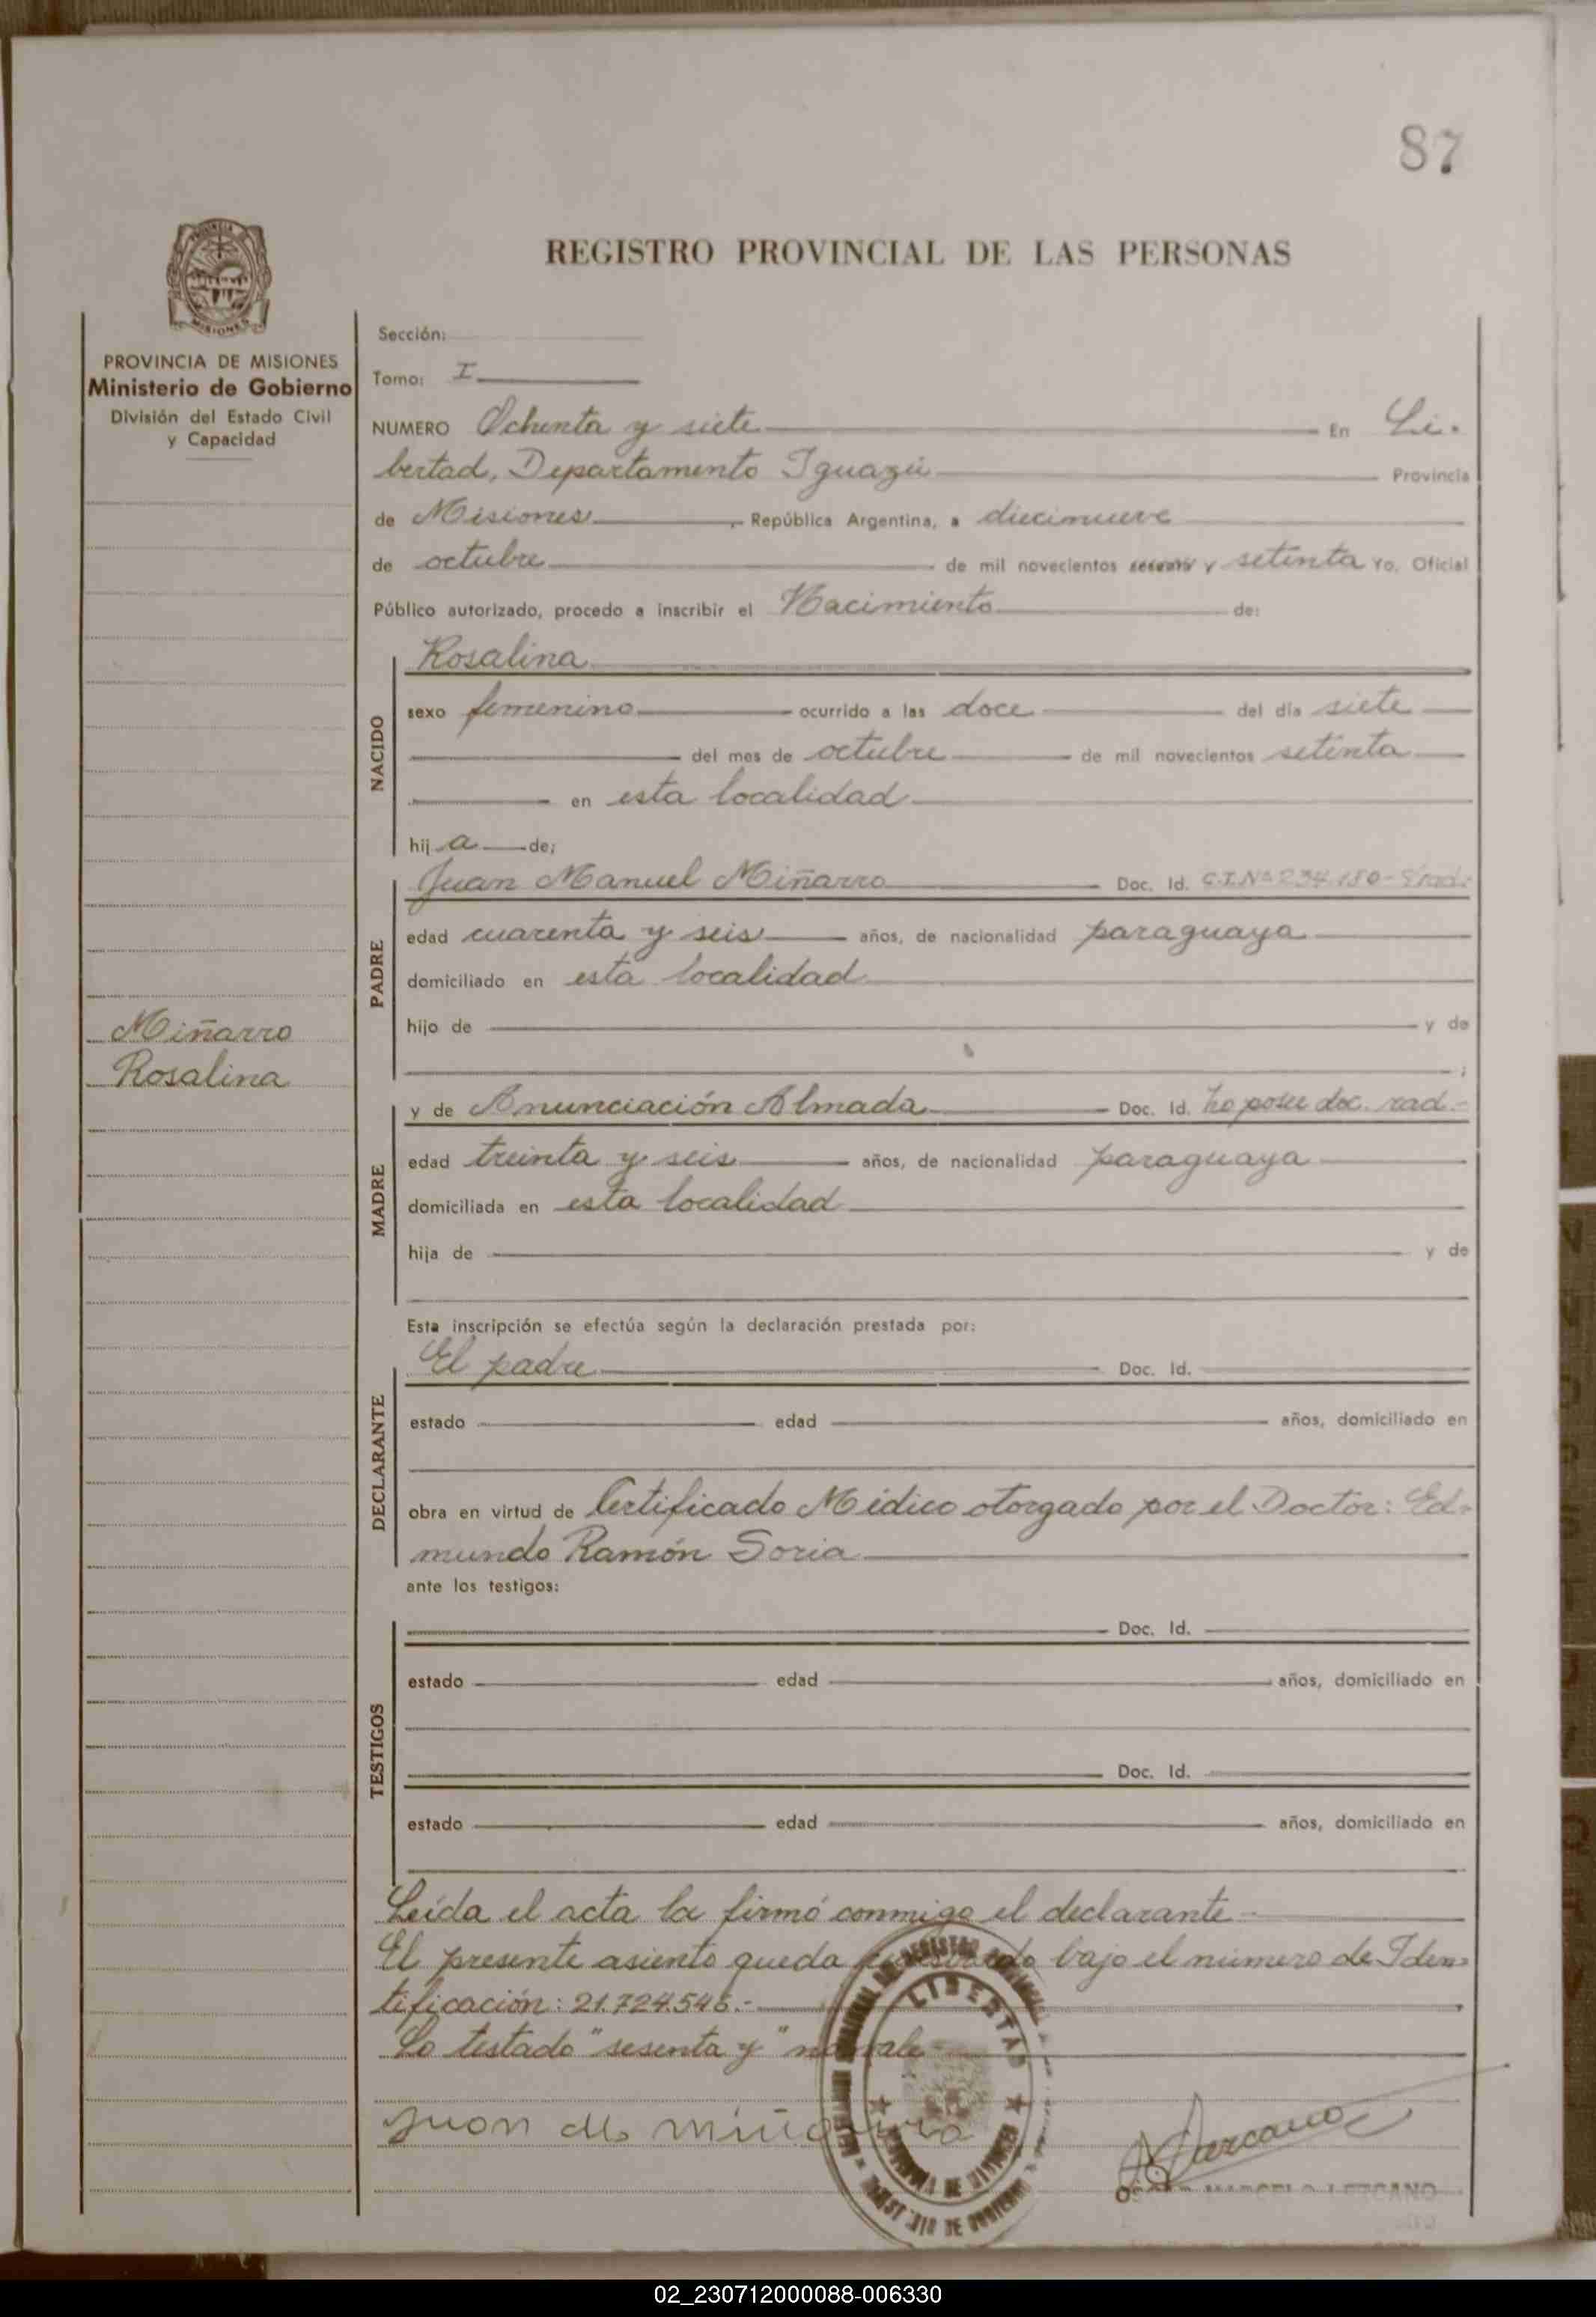 87
REGISTRO PROVINCIAL DE LAS PERSONAS
PROVINCIA DE MISIONES
Ministerio de Gobierno
División del Estado Civil
y Capacidad
Miñarro
Rosalina
Sección:
Tomo: I
NUMERO Ochenta y siete En Li.
bertad, Departamento Iguazú Provincia
de Misiones, República Argentina, a diecinueve
de octubre de mil novecientos sesenta y setenta Yo, Oficial
Público autorizado, procedo a inscribir el Nacimiento de:
NACIDO
Rosalina
sexo femenino ocurrido a las doce del día siete
del mes de octubre de mil novecientos setenta
en esta localidad
hij a de;
PADRE
Juan Manuel Miñarro Doc. Id. C.I.Nº 234.180-
edad cuarenta y seis años, de nacionalidad paraguaya
domiciliado en esta localidad
hijo de y de
;
MADRE
y de Anunciación Almada Doc. Id. no posee doc. rad.-
edad treinta y seis años, de nacionalidad paraguaya
domiciliada en esta localidad
hija de y de
Esta inscripción se efectúa según la declaración prestada por:
DECLARANTE
El padre Doc. Id.
estado edad años, domiciliado en
obra en virtud de Certificado Médico otorgado por el Doctor: Ed-
mundo Ramón Soria
ante los testigos:
TESTIGOS
Doc. Id.
estado edad años, domiciliado en
Doc. Id.
estado edad años, domiciliado en
Leída el acta la firmó conmigo el declarante
El presente asiento queda bajo el número de Iden-
tificación: 21.724.546.-
Lo testado "sesenta y" no vale
LIBERTAD
Juan M Miñarro
MARCELO LEZCANO
02_230712000088-006330